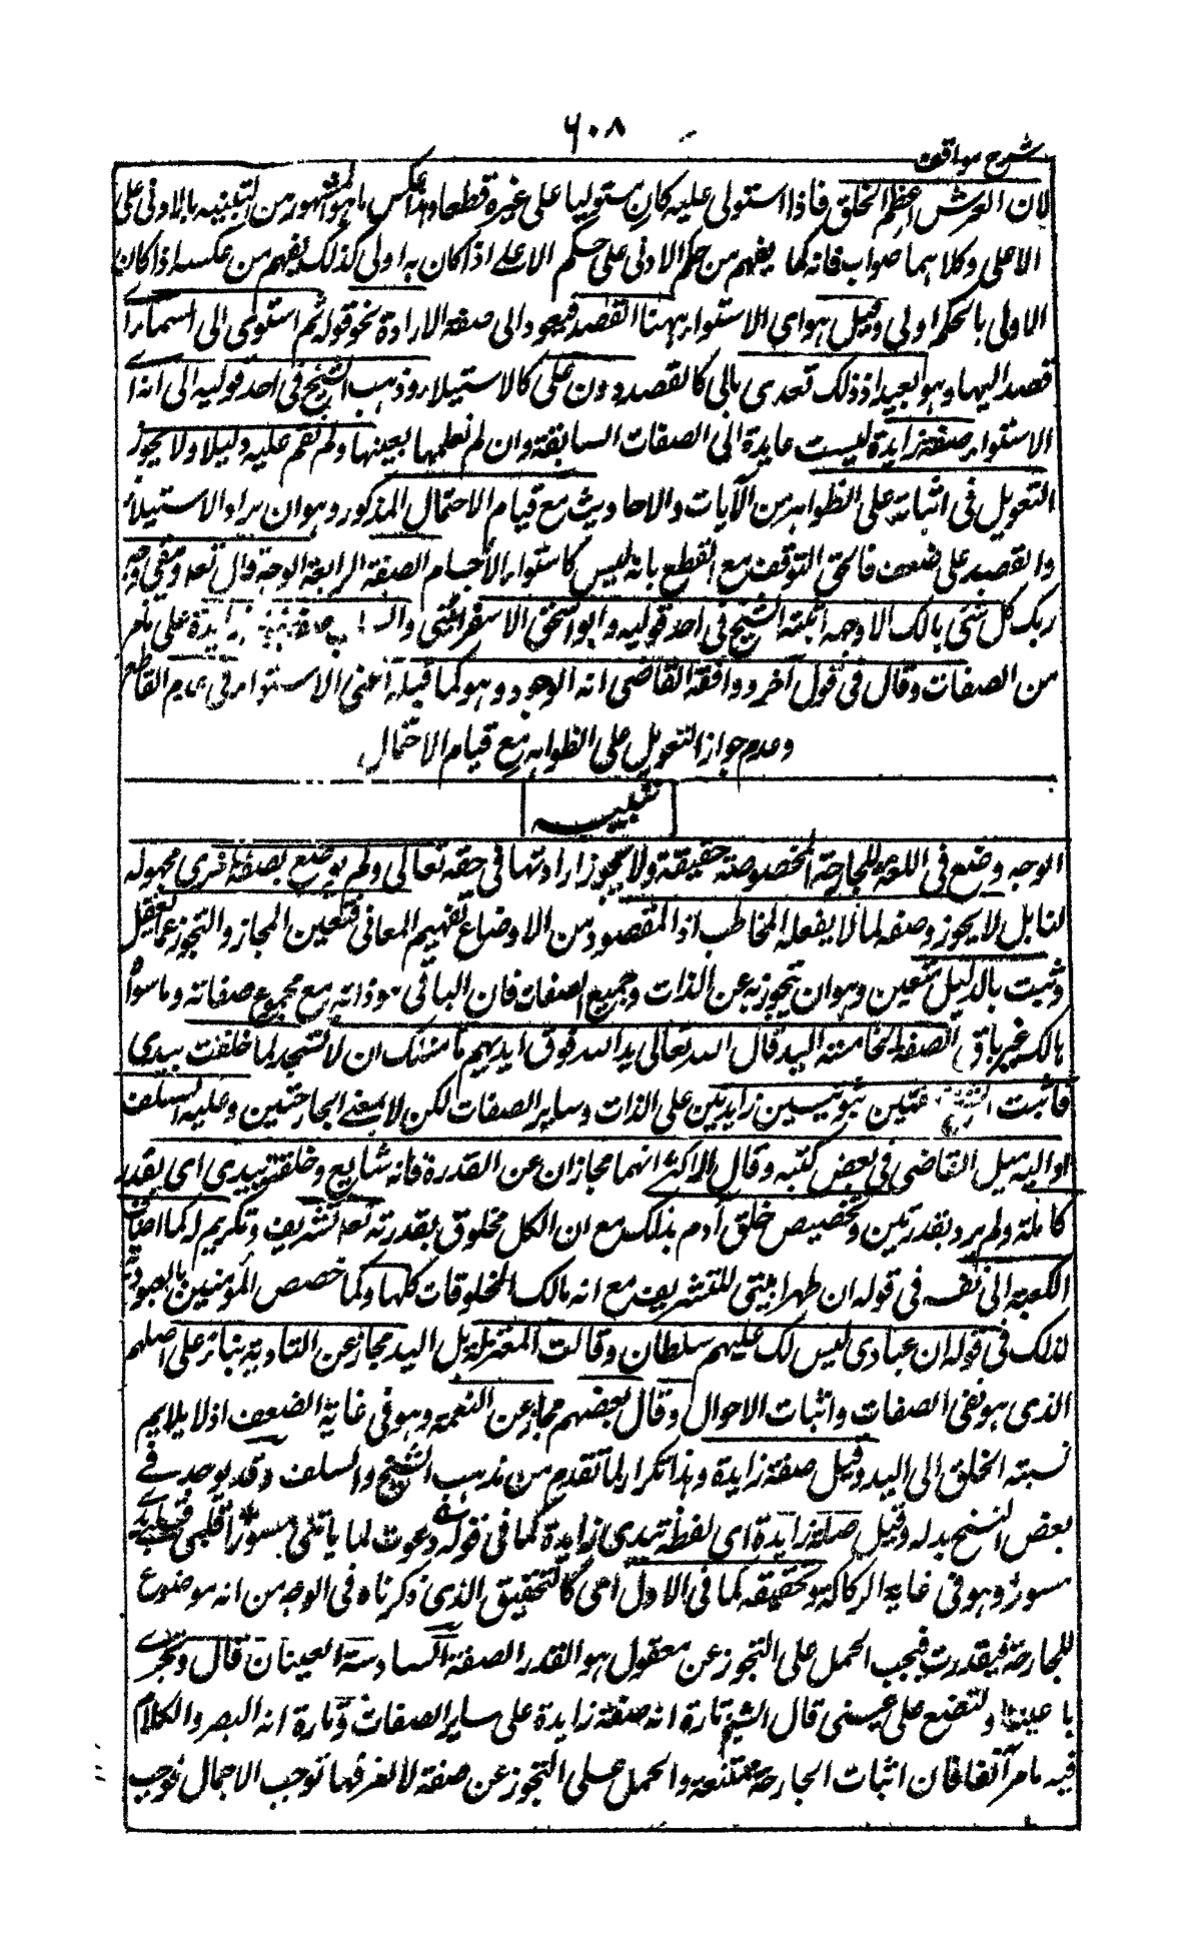 ٦٠٨
شرح مواقف
لان العرش اعظم الخلق فاذا استولى عليه كان مستوليا على غيره قطعا وهذا عكس ما هو المشهور من التنبيه بالادنى على
الاعلى وكلاهما صواب فانه كما يفهم من حكم الادنى على حكم الاعلى اذا كان به اولى كذلك يفهم من عكسه اذا كان
الاولى بالحكم اولى وقيل هو اى الاستواء ههنا القصد فيعود الى صفة الارادة نحو قوله ثم استوى الى السماء اى
قصد اليها وهو بعيد اذ ذلك تعدى بالى كالقصد دون على كالاستيلاء وذهب الشيخ فى احد قوليه الى انه اى
الاستواء صفة زايدة ليست عايدة الى الصفات السابقة وان لم نعلمها بعينها ولم نقم عليه دليلا ولا يجوز
التعويل فى اثباته على الظواهر من الآيات والاحاديث مع قيام الاحتمال المذكور وهو ان يراد الاستيلاء
والقصد على ضعف فالحق التوقف مع القطع بانه ليس كاستواء الاجسام الصفة الرابعة الوجه قال تعه ويبقى وجه
ربك كل شئ هالك الا وجهه اثبته الشيخ فى احد قوليه وابو اسحق الاسفرائنى صفة زايدة على ما مر
من الصفات وقال فى قول آخر ووافقه القاضى انه الوجود وهو كما قبله اعنى الاستواء فى عدم القاطع
وعدم جواز التعويل على الظواهر مع قيام الاحتمال
تنبيه
الوجه وضع فى اللغة للجارحة المخصوصة حقيقة ولا يجوز ارادتها فى حقه تعالى ولم يوضع لصفة اخرى مجهولة
لنا بل لا يجوز وضعه لما لا يعقله المخاطب اذ المقصود من الاوضاع تفهيم المعانى فتعين المجاز والتجوز عما يعقل
وثبت بالدليل متعين وهو ان يتجوز به عن الذات وجميع الصفات فان الباقى هو ذاته مع مجموع صفاته وما سواه
هالك غير باق الصفة الخامسة اليد قال الله تعالى يد الله فوق ايديهم ما منعك ان لا تسجد لما خلقت بيدى
فاثبت الشيخ ثبوتيتين زايدتين على الذات وساير الصفات لكن لا بمعنى الجارحتين وعليه السلف
واليه ميل القاضى فى بعض كتبه وقال الاكثر انهما مجازان عن القدرة فانه شايع وخلقته بيدى اى بقدرة
كاملة ولم يرد بقدرتين وتخصيص خلق آدم بذلك مع ان الكل مخلوق بقدرته تعه تشريف وتكريم له كما اضاف
الكعبة الى نفسه فى قوله ان طهرا بيتى للتشريف مع انه مالك المخلوقات كلها وكما خصص المؤمنين بالعبودية
لذلك فى قوله ان عبادى ليس لك عليهم سلطان وقالت المعتزلة بل اليد مجاز عن القادرية بناء على اصلهم
الذى هو نفى الصفات واثبات الاحوال وقال بعضهم مجاز عن النعمة وهو فى غاية الضعف اذ لا يلايم
نسبة الخلق الى اليد وقيل صفة زايدة وهذا تكرار لما تقدم من مذهب الشيخ والسلف وقد يوجد فى
بعض النسخ بدله وقيل صلة زايدة اى لفظة بيدى زايدة كما فى قوله دعوت لما نابنى مسورا فلبى فلبى يدى
مسور وهو فى غاية الركاكة وتحقيقه كما فى الاول اى كالتحقيق الذى ذكرناه فى الوجه من انه موضوع
للجارحة فيجب الحمل على التجوز عن معقول هو القدرة الصفة السادسة العينان قال تجرى
باعيننا ولتصنع على عينى قال الشيخ تارة انه صفة زايدة على ساير الصفات وتارة انه البصر والكلام
فيه ما مر آنفا فان اثبات الجارحة ممتنعة والحمل على التجوز عن صفة لا نعرفها توجب الاجمال فوجب